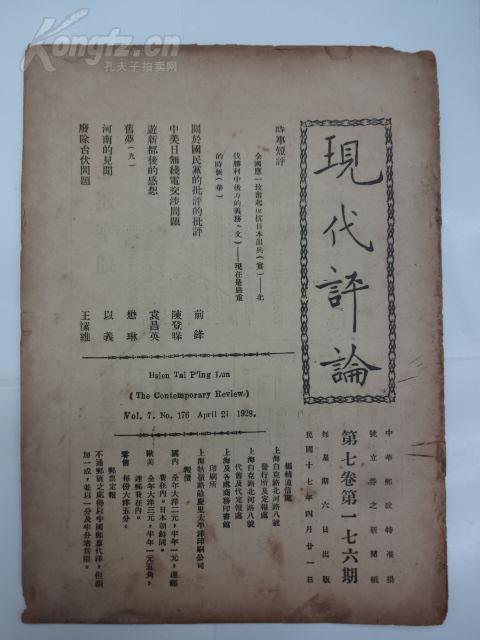 Kongfz.cn
孔夫子拍卖网
現代評論
中華郵政特准掛
號立券之新聞紙
第七卷第一七六期
每星期六日出版
民國十七年四月廿一日
時事短評
全國應一致奮起反抗日本出兵(實)——北
伐勝利中後方的義務(文)——現在是嚴重
的時個(華)
關於國民黨的批評的批評 前鋒
中美日無綫電交涉問題 陳登皥
遊新都後的感想 袁昌英
舊夢(九) 懋琳
河南的見聞 以義
廢除台伏問題 王愫維
Hsien Tai P'ing Lun
(The Contemporary Review)
Vol. 7. No. 176 April 21 1928.
編輯通信處
上海白克路北河路八號
發行所及定報處
上海白克路北河路八號
代售及代定報處
上海及各處商務印書館
印刷所
上海牯嶺路毓慶里太平洋印刷公司
報價
國內 全年大洋二元,半年一元,連郵
費在內。日本朝鮮同。
歐美 全年大洋三元,半年一元五角,
連郵費在內。
零售 每份大洋五分。
郵票定報
不通郵匯之處得以中國郵票代洋,但須
加一成,並以一分及半分者爲限。